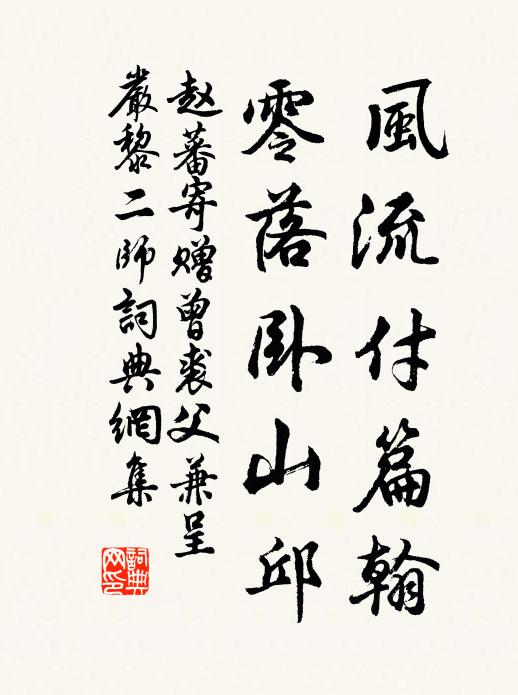 風流付篇翰
零落卧山邱
赵蕃寄赠曾裘父兼呈
嚴黎二師詞典網集
詞典网印